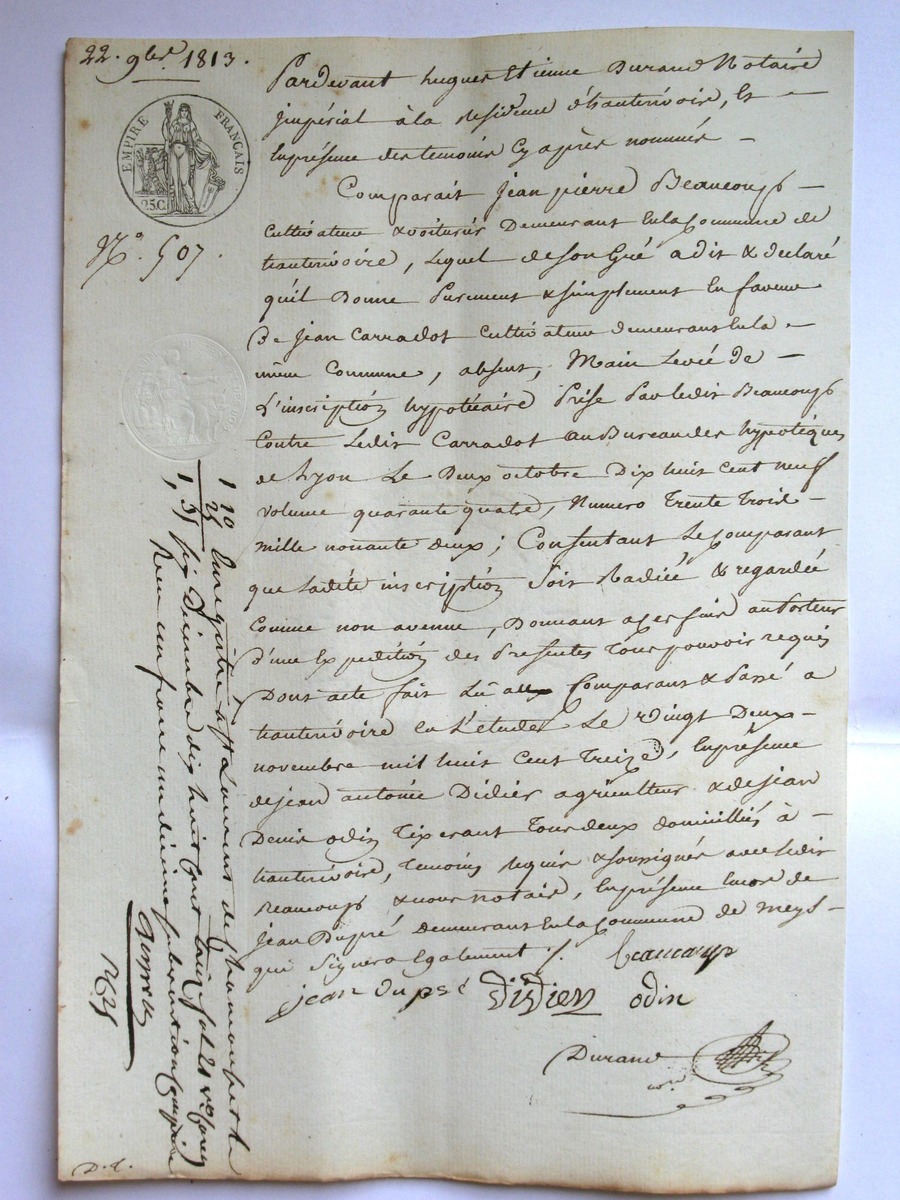 22. 9bre 1813.
EMPIRE FRANÇAIS
25C.
N.° 507.
Pardevant hugues Etienne Durand Notaire
jmpérial à la residence d'hauterivoire, Et
En présence des temoins Cy après nommés
Comparait Jean pierre Beaucoup
Cultivateur & voiturier Demeurant En la Commune de
hauterivoire, Lequel de son Gré a dit & declaré
qu'il Donne Purement & simplement En faveur
De Jean Carradot Cultivateur demeurant En la
même Commune, absent, Main Levée de
L'inscription hypotécaire Prise Par ledit Beaucoup
Contre Ledit Carradot au Bureau des hypotèques
de Lyon Le Deux octobre Dix huit cent neuf
volume quarante quatre, Numero Trente Trois
mille nonante deux; Consentant Le Comparant
que Ladite inscription Soit Radiée & regardée
Comme non avenue, Donnant a cet fait au Porteur
D'une Expedition des Presentes Tous pouvoir requis
Dont acte fait Lû aux Comparant & Passé a
hauterivoire En L'etude, Le Vingt Deux
novembre mil huit Cent Treize, En présence
de jean antoine Didier agriculteur & de jean
Denis odin Tixerant Tous deux domicilliés à
hauterivoire, Temoins requis & soussignés avec Ledit
Beaucoup & nous notaire, En présence Encore de
Jean Dupré Demeurant En la Commune de Meys
qui Signera Egalement ./.
beaucoup
jean dupré Didier odin
Durand
nre
1 10
25
1, 35
Enregistré à St Laurent de Chamousset le
six Décembre dix huit cent treize fol 21
Reçu un franc un décime subvention comprise
1625
D. d.